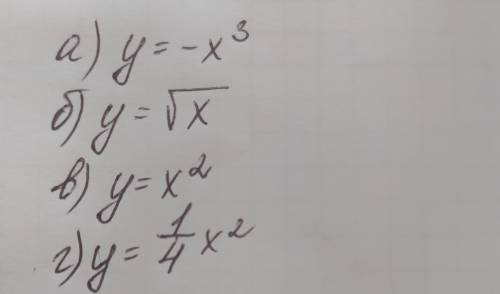 а) y = -x³
б) y = √x
в) y = x²
г) y = 1/4 x²